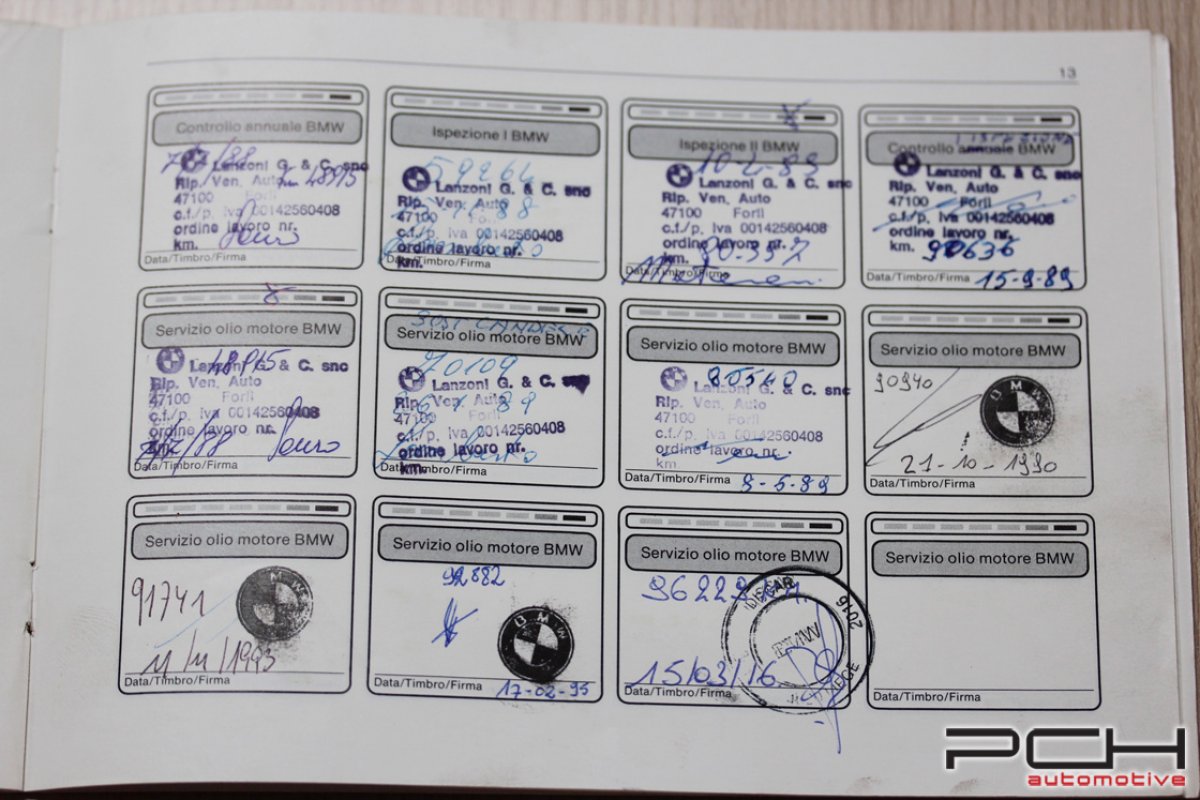 13
Controllo annuale BMW
Lanzoni G. & C. snc
Rip. Ven. Auto
47100 Forlì
c.f./p. iva 00142560408
ordine lavoro nr.
km.
Data/Timbro/Firma
Ispezione I BMW
59264
Lanzoni G. & C. snc
Rip. Ven. Auto
47100 Forlì
c.f./p. iva 00142560408
ordine lavoro nr.
km.
Data/Timbro/Firma
Ispezione II BMW
10-2-89
Lanzoni G. & C. snc
Rip. Ven. Auto
47100 Forlì
c.f./p. iva 00142560408
ordine lavoro nr.
km. 80.357
Data/Timbro/Firma
Controllo annuale BMW
Lanzoni G. & C. snc
Rip. Ven. Auto
47100 Forlì
c.f./p. iva 00142560408
ordine lavoro nr.
km. 90636
Data/Timbro/Firma 15-9-89
Servizio olio motore BMW
Lanzoni G. & C. snc
Rip. Ven. Auto
47100 Forlì
c.f./p. iva 00142560408
ordine lavoro nr.
Data/Timbro/Firma
SOST CANDELE
Servizio olio motore BMW
70109
Lanzoni G. & C. snc
Rip. Ven. Auto
47100 Forlì
c.f./p. iva 00142560408
ordine lavoro nr.
km.
Data/Timbro/Firma
Servizio olio motore BMW
80540
Lanzoni G. & C. snc
Rip. Ven. Auto
47100 Forlì
c.f./p. iva 00142560408
ordine lavoro nr.
km
Data/Timbro/Firma 9-5-89
Servizio olio motore BMW
90940
BMW
21-10-1990
Data/Timbro/Firma
Servizio olio motore BMW
91741
BMW
11/11/1993
Data/Timbro/Firma
Servizio olio motore BMW
92882
BMW
Data/Timbro/Firma 17-02-95
Servizio olio motore BMW
96229
2016
BMW
15/03/16
Data/Timbro/Firma
Servizio olio motore BMW
Data/Timbro/Firma
PCH
automotive